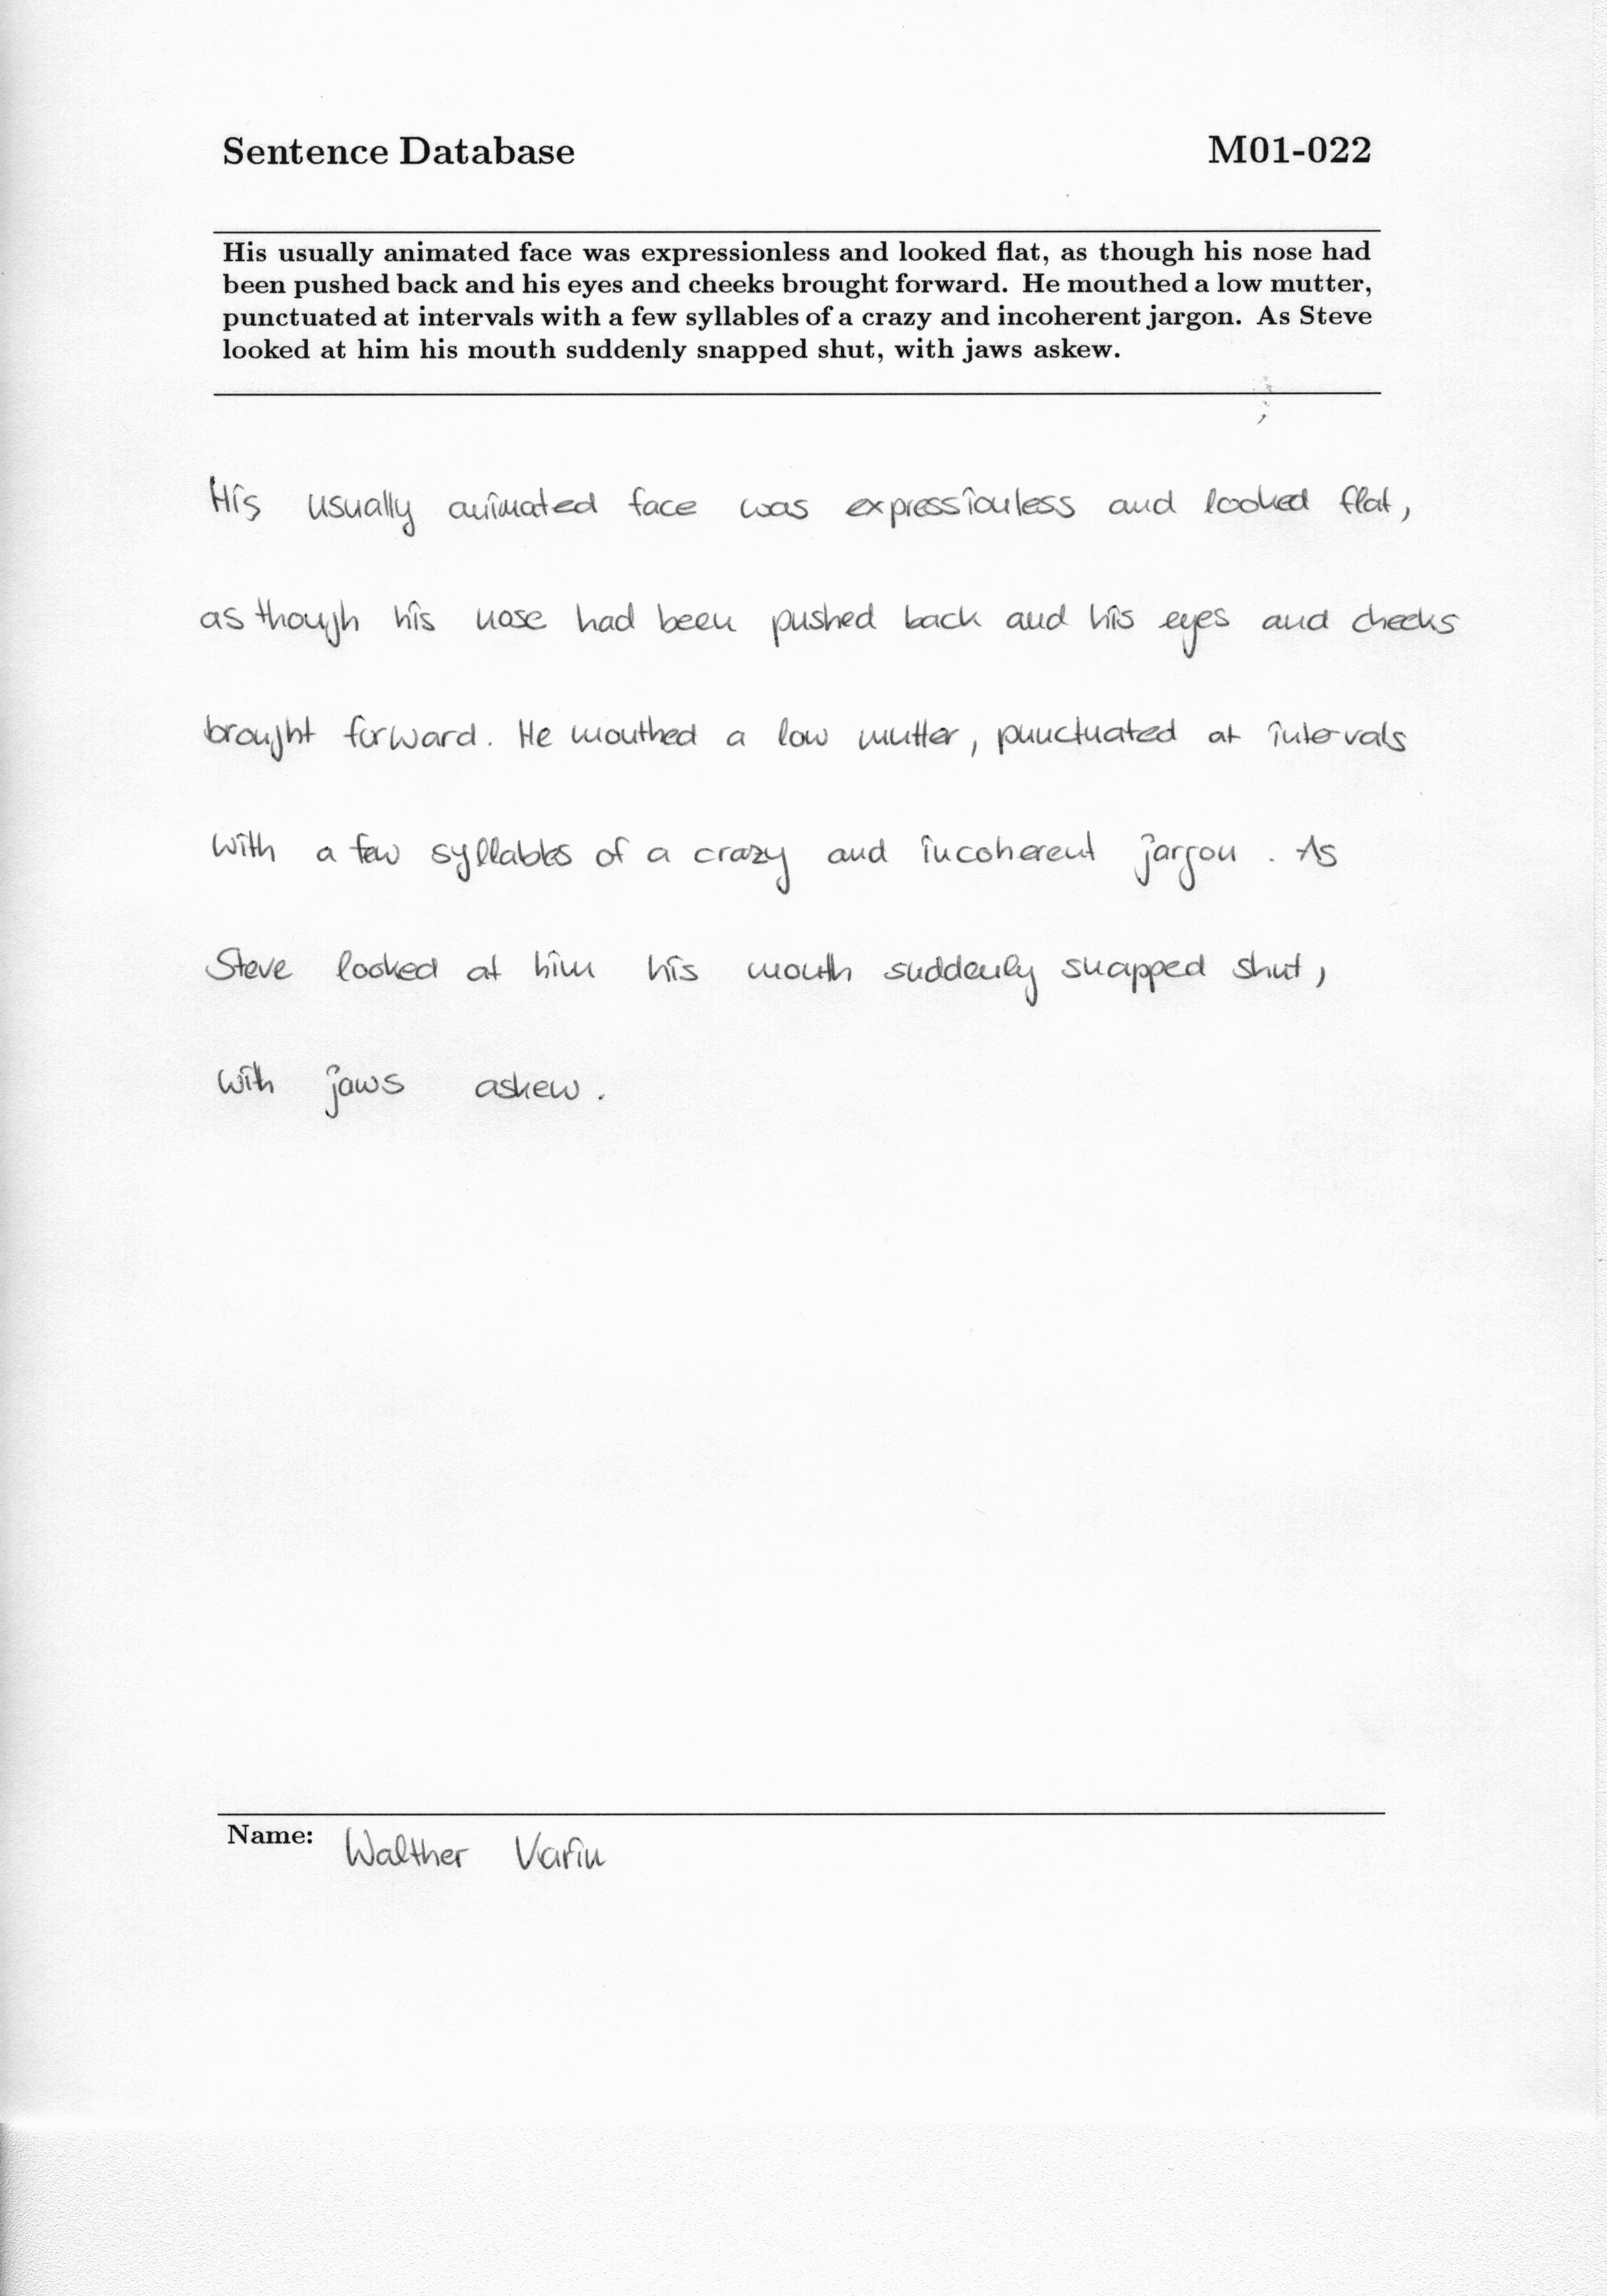 Sentence Database M01-022
His usually animated face was expressionless and looked flat, as though his nose had
been pushed back and his eyes and cheeks brought forward. He mouthed a low mutter,
punctuated at intervals with a few syllables of a crazy and incoherent jargon. As Steve
looked at him his mouth suddenly snapped shut, with jaws askew.
His usually animated face was expressionless and looked flat,
as though his nose had been pushed back and his eyes and cheeks
brought forward. He mouthed a low mutter, punctuated at intervals
with a few syllables of a crazy and incoherent jargon . As
Steve looked at him his mouth suddenly snapped shut,
with jaws askew.
Name: Walther Varin